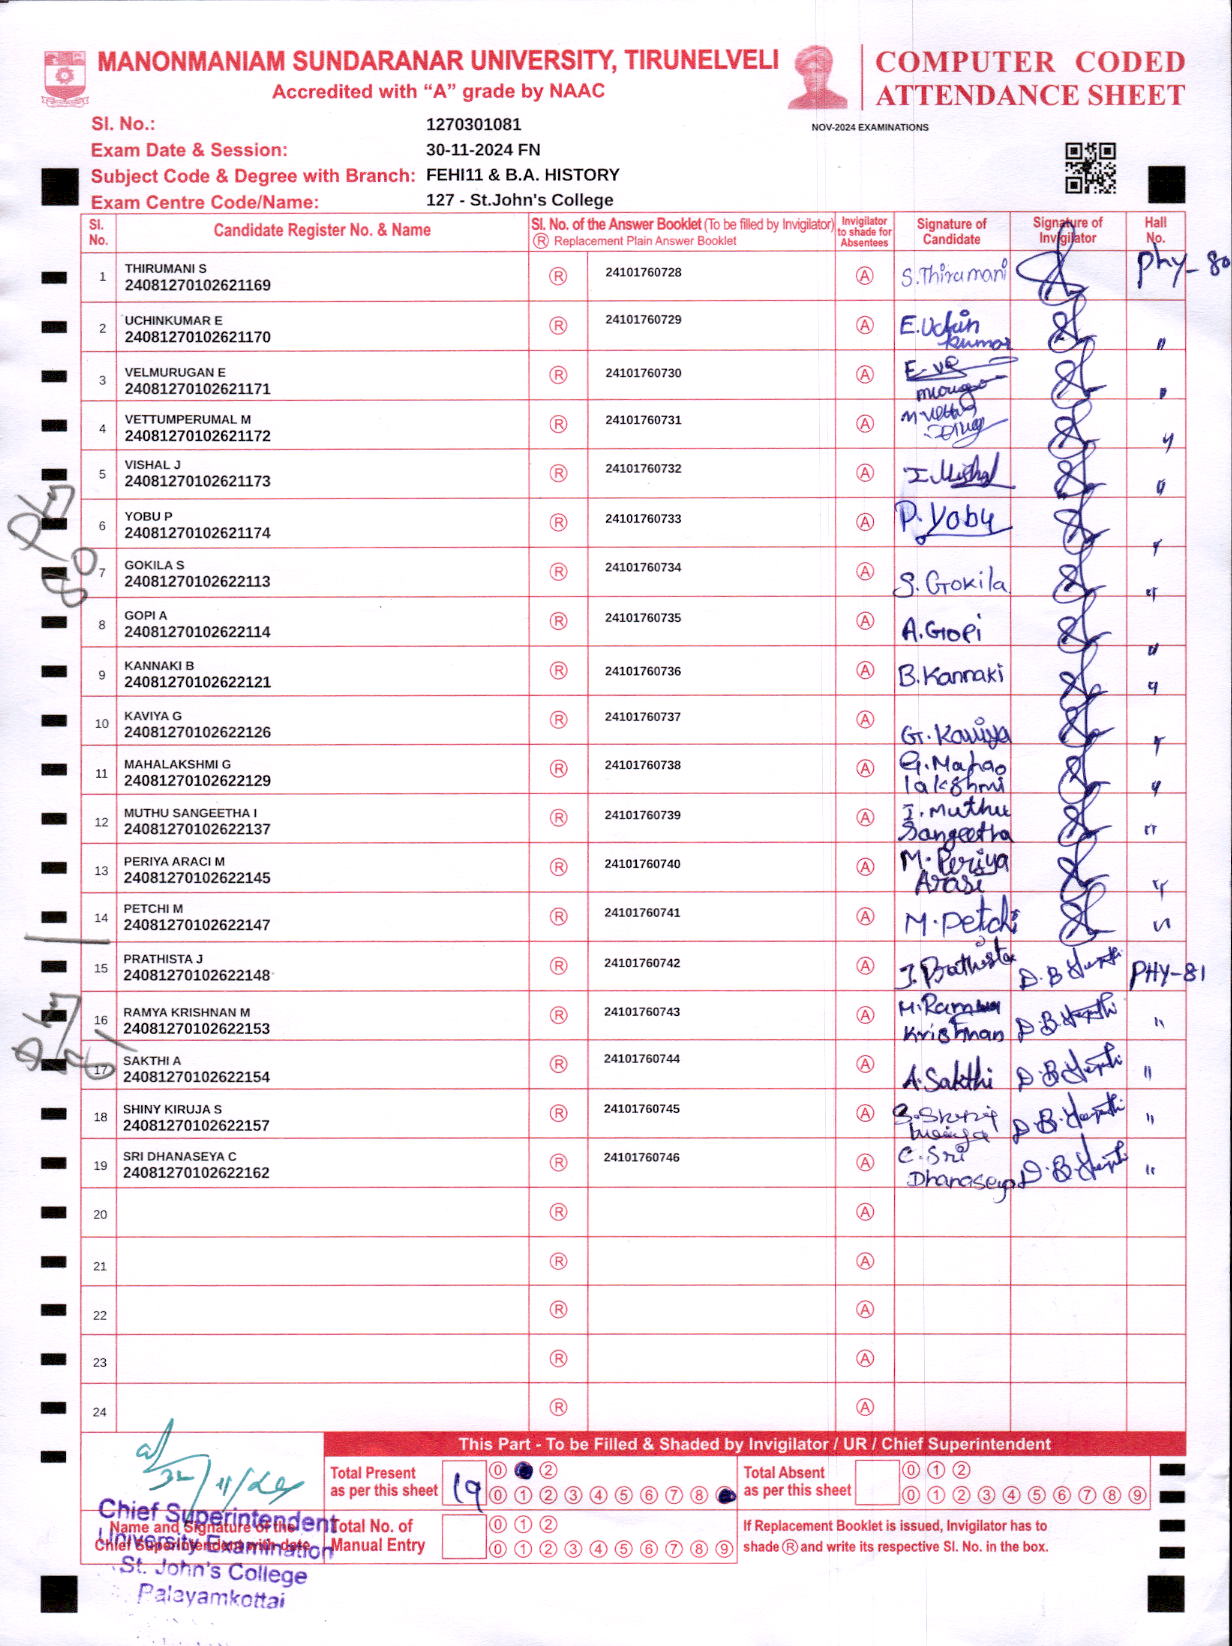 MANONMANIAM SUNDARANAR UNIVERSITY, TIRUNELVELI
Accredited with “A” grade by NAAC
COMPUTER CODED
ATTENDANCE SHEET
NOV-2024 EXAMINATIONS
Sl. No.: 1270301081
Exam Date & Session: 30-11-2024 FN
Subject Code & Degree with Branch: FEHI11 & B.A. HISTORY
Exam Centre Code/Name: 127 - St.John's College
Sl. No. Candidate Register No. & Name Sl. No. of the Answer Booklet (To be filled by Invigilator) Ⓡ Replacement Plain Answer Booklet Invigilator to shade for Absentees Signature of Candidate Signature of Invigilator Hall No.
1 THIRUMANI S Ⓡ 24101760728 Ⓐ S.Thirumani Phy-80
24081270102621169
2 UCHINKUMAR E Ⓡ 24101760729 Ⓐ E.Uchin kumar "
24081270102621170
3 VELMURUGAN E Ⓡ 24101760730 Ⓐ "
24081270102621171
4 VETTUMPERUMAL M Ⓡ 24101760731 Ⓐ "
24081270102621172
5 VISHAL J Ⓡ 24101760732 Ⓐ "
24081270102621173
6 YOBU P Ⓡ 24101760733 Ⓐ P.Yobu "
24081270102621174
7 GOKILA S Ⓡ 24101760734 Ⓐ S.Gokila "
24081270102622113
8 GOPI A Ⓡ 24101760735 Ⓐ A.Gopi "
24081270102622114
9 KANNAKI B Ⓡ 24101760736 Ⓐ B.Kannaki "
24081270102622121
10 KAVIYA G Ⓡ 24101760737 Ⓐ G.Kaviya "
24081270102622126
11 MAHALAKSHMI G Ⓡ 24101760738 Ⓐ G.Maha lakshmi "
24081270102622129
12 MUTHU SANGEETHA I Ⓡ 24101760739 Ⓐ I.Muthu Sangeetha "
24081270102622137
13 PERIYA ARACI M Ⓡ 24101760740 Ⓐ M.Periya Arasi "
24081270102622145
14 PETCHI M Ⓡ 24101760741 Ⓐ M.Petchi "
24081270102622147
15 PRATHISTA J Ⓡ 24101760742 Ⓐ J.Prathista PHY-81
24081270102622148
16 RAMYA KRISHNAN M Ⓡ 24101760743 Ⓐ M.Ramya Krishnan "
24081270102622153
17 SAKTHI A Ⓡ 24101760744 Ⓐ A.Sakthi "
24081270102622154
18 SHINY KIRUJA S Ⓡ 24101760745 Ⓐ "
24081270102622157
19 SRI DHANASEYA C Ⓡ 24101760746 Ⓐ C.Sri Dhanaseya "
24081270102622162
20 Ⓡ Ⓐ
21 Ⓡ Ⓐ
22 Ⓡ Ⓐ
23 Ⓡ Ⓐ
24 Ⓡ Ⓐ
Phy 80
Phy 81
This Part - To be Filled & Shaded by Invigilator / UR / Chief Superintendent
Total Present as per this sheet 19 ⓪ ②
⓪ ① ② ③ ④ ⑤ ⑥ ⑦ ⑧
Total Absent as per this sheet ⓪ ① ②
⓪ ① ② ③ ④ ⑤ ⑥ ⑦ ⑧ ⑨
Total No. of Manual Entry ⓪ ① ②
⓪ ① ② ③ ④ ⑤ ⑥ ⑦ ⑧ ⑨
If Replacement Booklet is issued, Invigilator has to
shade Ⓡ and write its respective Sl. No. in the box.
Name and Signature of the
Chief Superintendent with date
Chief Superintendent
University Examination
St. John's College
Palayamkottai